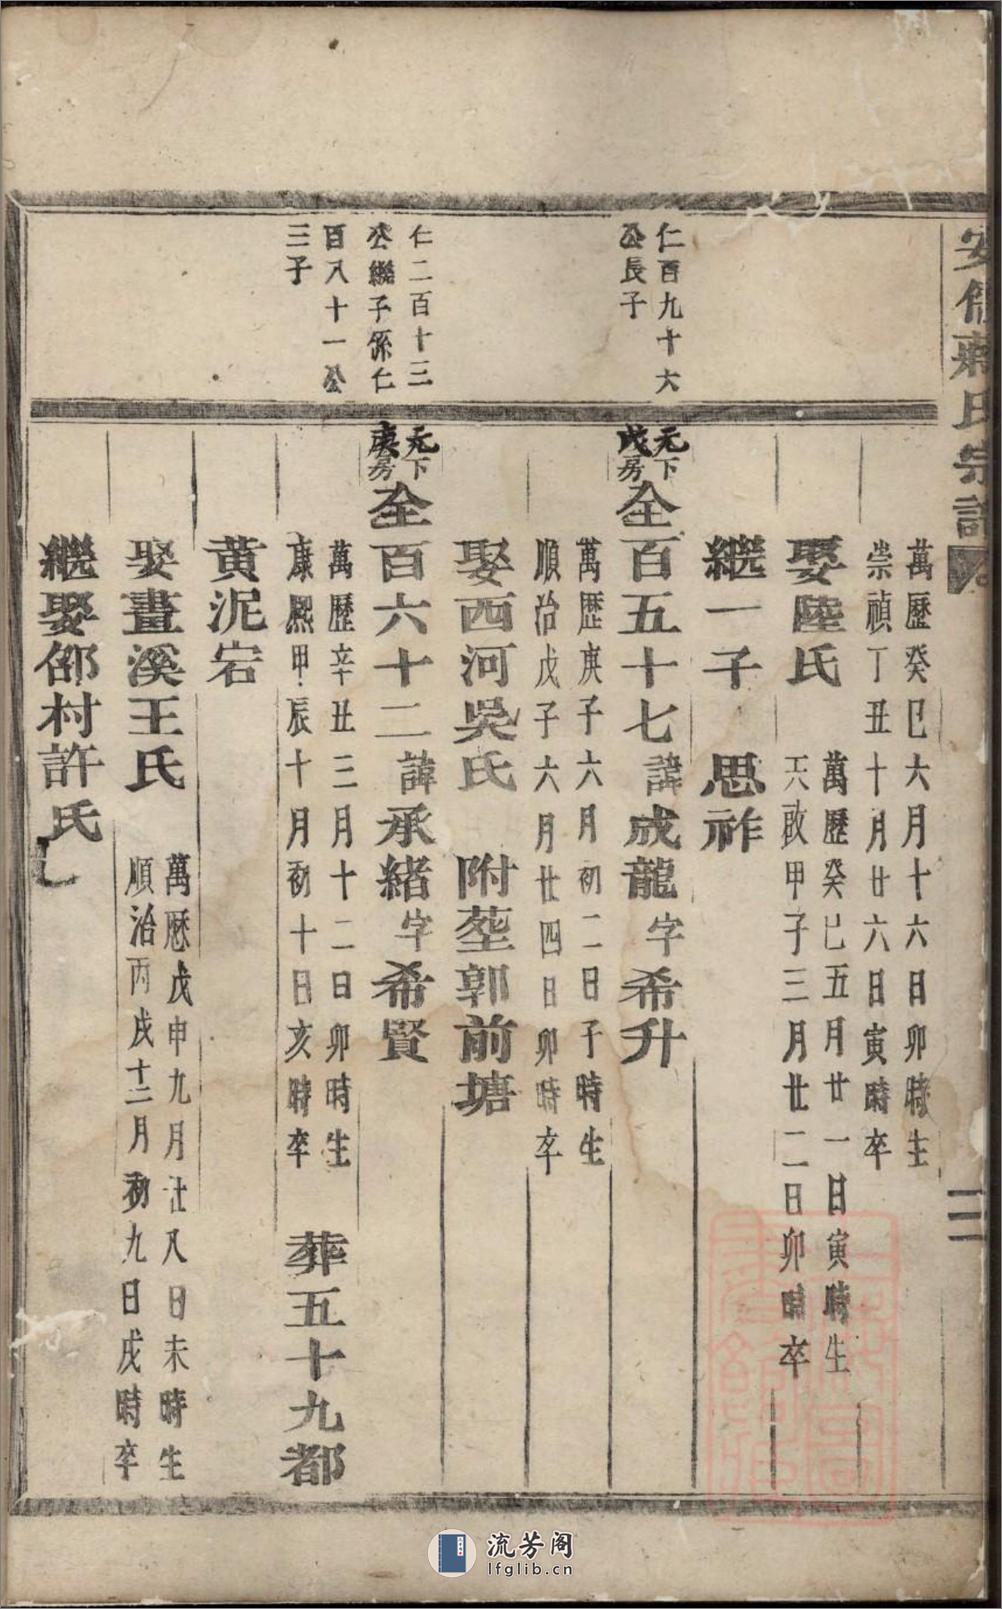 安儒蔣氏宗譜
二
萬歷癸巳六月十六日卯時生
崇禎丁丑十月廿六日寅時卒
娶陸氏
萬歷癸巳五月廿一日寅時生
天啟甲子三月廿二日卯時卒
継一子 思祚
仁百九十六
公長子
元下
戊房
全百五十七諱成龍字希升
萬歷庚子六月初二日子時生
順治戊子六月廿四日卯時卒
娶西河吳氏 附塟郭前塘
仁二百十三
公繼子係仁
百八十一公
三子
元下
庚房
全百六十二諱承緒字希賢
萬歷辛丑三月十二日卯時生
康熙甲辰十月初十日亥時卒
葬五十九都
黄泥宕
娶畫溪王氏
萬歷戊申九月廿八日未時生
順治丙戌十二月初九日戌時卒
継娶邵村許氏
流芳阁
lfglib.cn